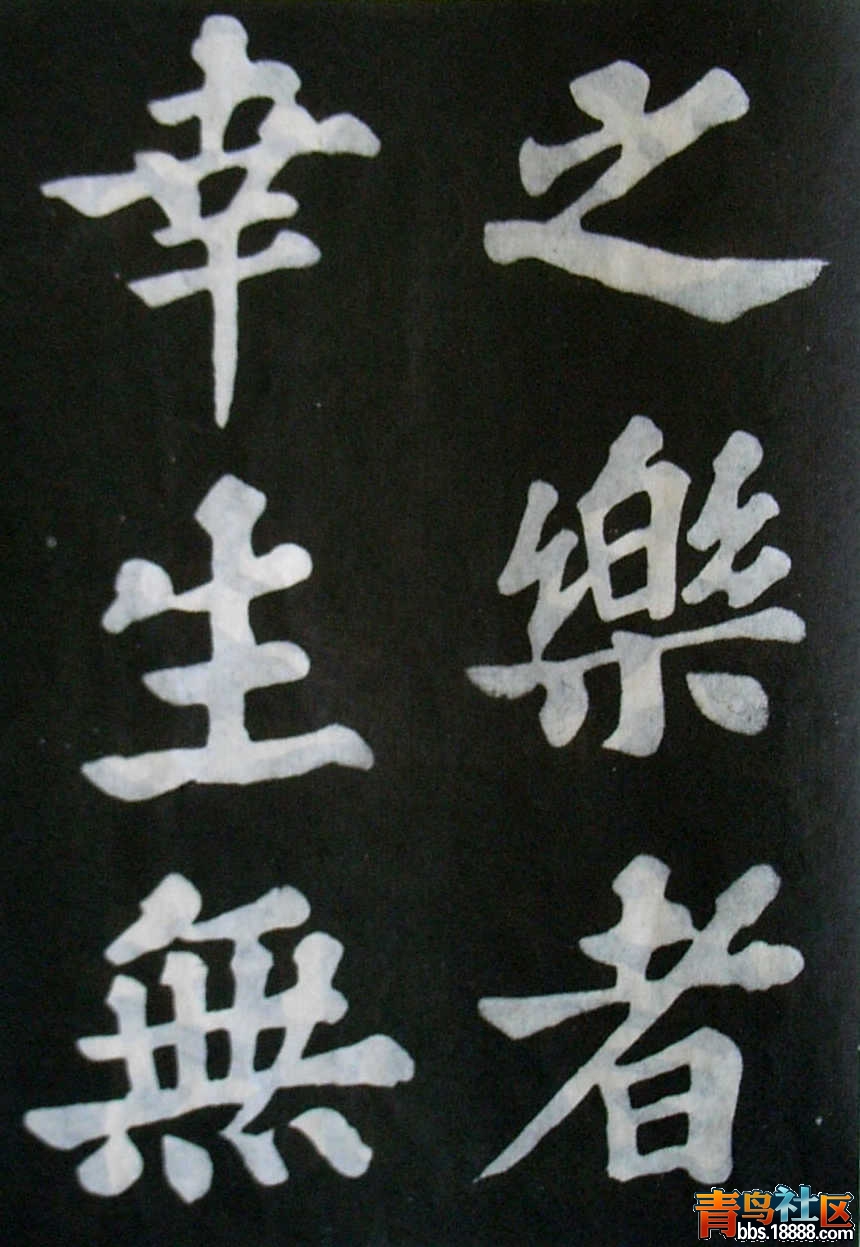 之樂者
幸生無
青鸟社区
bbs.18888.com